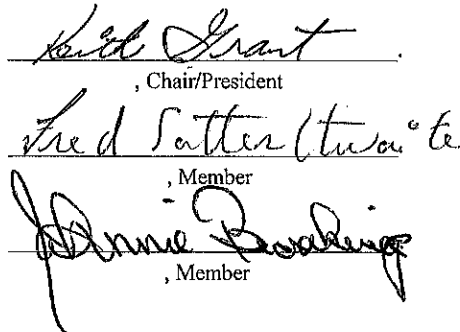 Keith Grant
, Chair/President
Fred Satterthwaite
, Member
Johnnie Brookings
, Member